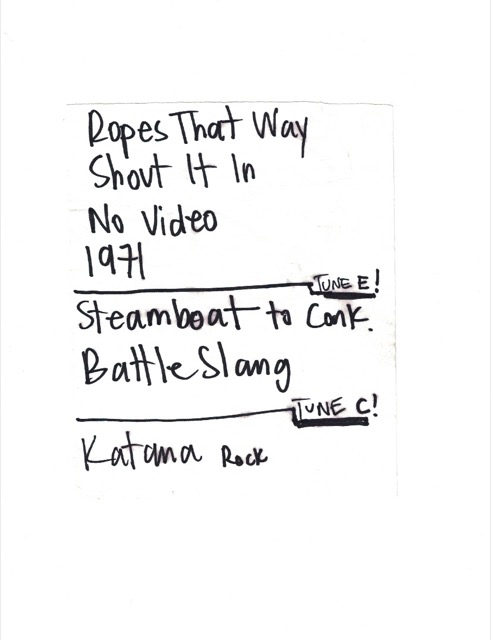 Ropes That Way
Shout It In
No Video
1971
TUNE E!
Steamboat to Conk.
Battle Slang
TUNE C!
Katana Rock